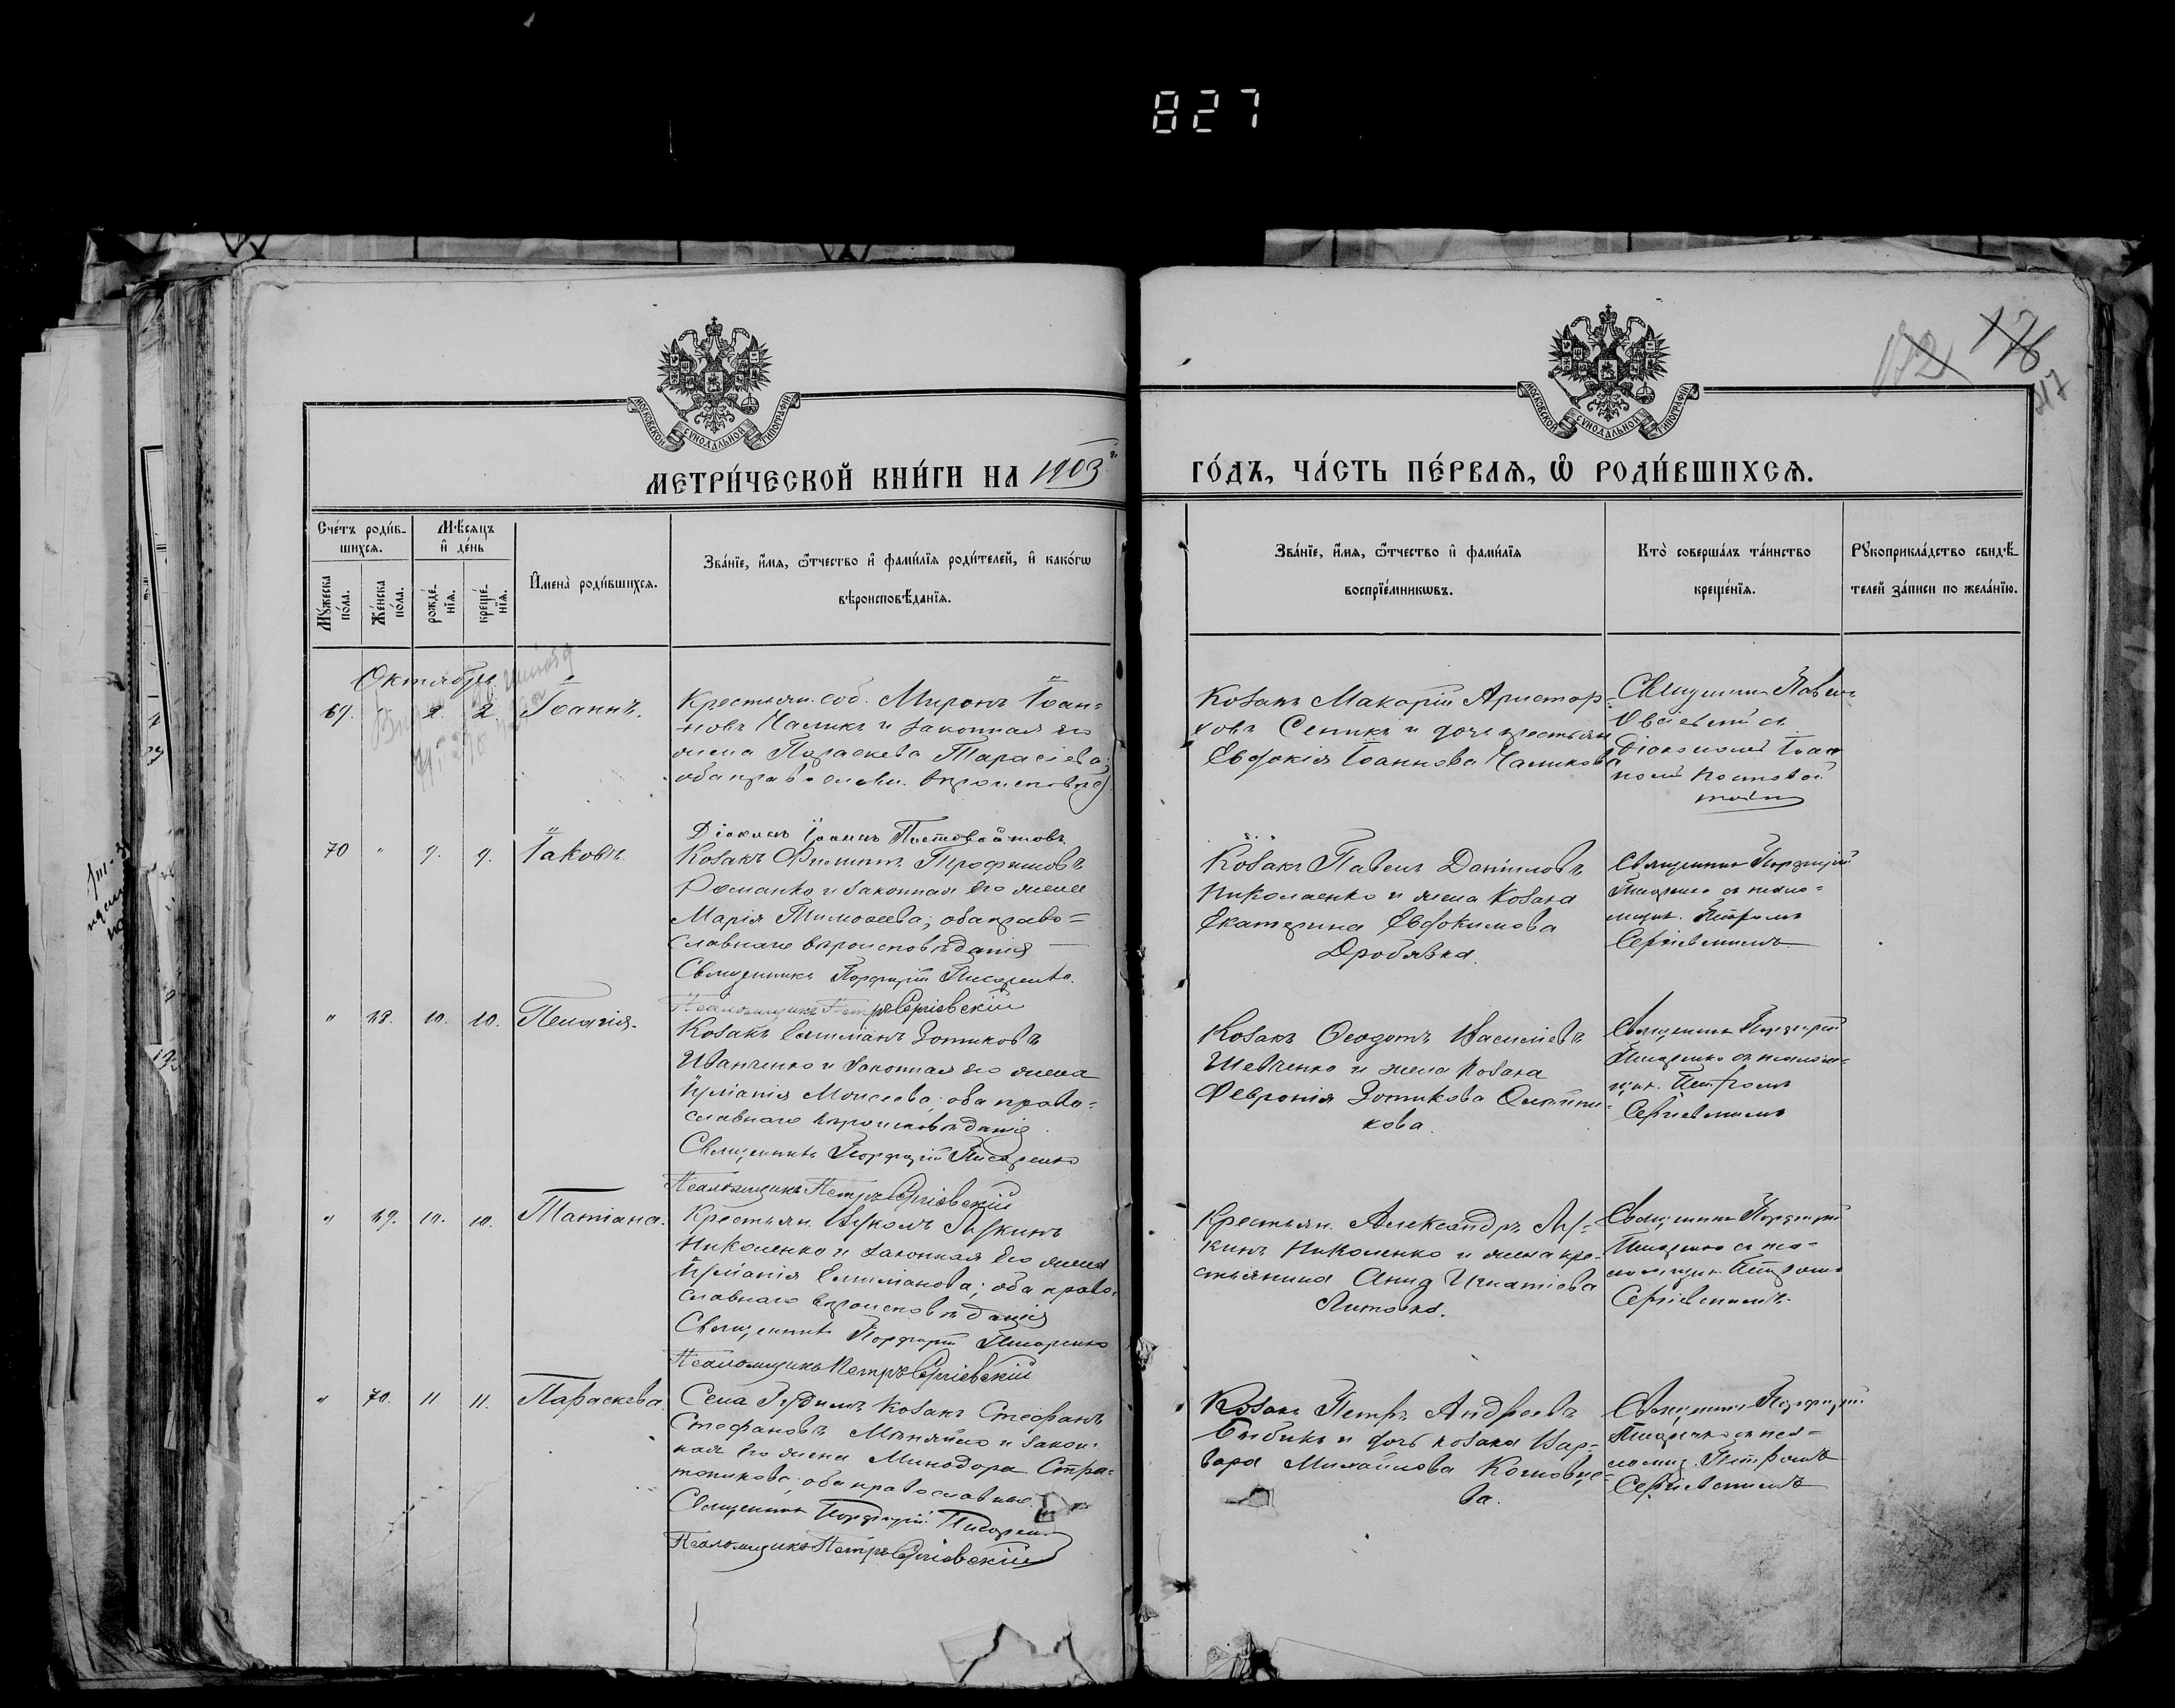 827
МОСКОВСКОЙ СУНОДАЛЬНОЙ ТИПОГРАФІИ
МОСКОВСКОЙ СУНОДАЛЬНОЙ ТИПОГРАФІИ
172 176
217
МЕТРИ́ЧЕСКОЙ КНИ́ГИ НА 1903 г.
ГО́ДЪ, ЧА́СТЬ ПЕ́РВАѦ, Ѡ РОДИ́ВШИХСѦ.
Сче́тъ роди́в-
шихсѧ.
Мѣ́сѧцъ
и҆ де́нь
Мꙋ́жеска
по́ла.
Же́нска
по́ла.
рожде́-
нїѧ.
креще́-
нїѧ.
И҆мена̀ роди́вшихсѧ.
Зва́нїе, и҆́мѧ, ѻ҆́тчество и҆ фами́лїѧ роди́телей, и҆ како́гѡ
вѣроисповѣ́данїѧ.
Зва́нїе, и҆́мѧ, ѻ҆́тчество и҆ фами́лїѧ
воспрїе́мникѡвъ.
Кто̀ соверша́лъ та́инство
креще́нїѧ.
Рꙋкоприкла́дство свидѣ́-
телей за́писи по жела́нїю.
Октябрь
69. " 2. 2. Іоаннъ.
Крестьян. соб. Миронъ Іоан-
новъ Чаликъ и законная его
жена Параскева Тарасіева;
оба православн. вѣроисповѣд.
Козакъ Макарій Аристар-
ховъ Сеникъ и дочь крестьян.
Евдокія Іоаннова Чаликова
Священникъ Павелъ
съ
Діакономъ Іоан-
номъ Постовой-
товымъ
Діаконъ Іоаннъ Постовойтовъ
70 " 9. 9. Іаковъ.
Козакъ Филиппъ Трофимовъ
Романко и законная его жена
Марія Тимоѳеева; оба право-
славнаго вѣроисповѣданія
Священникъ Порфирій Писаренко.
Псаломщикъ Петръ Сергіевскій
Козакъ Павелъ Даніиловъ
Николаенко и жена козака
Екатерина Евдокимова
Дробязка.
Священникъ Порфирій
Писаренко съ псало-
мщик. Петромъ
Сергіевскимъ
" 68. 10. 10. Пелагія.
Козакъ Емиліанъ Зотиковъ
Иванченко и законная его жена
Іуліанія Моисеева; оба право-
славнаго вѣроисповѣданія.
Священникъ Порфирій Писаренко
Псаломщикъ Петръ Сергіевскій
Козакъ Ѳеодотъ Василіевъ
Шевченко и жена козака
Февронія Зотикова Олейни-
кова.
Священникъ Порфирій
Писаренко съ псалом-
щик. Петромъ
Сергіевскимъ
" 69. 10. 10. Татіана.
Крестьян. Вуколъ Лукинъ
Николенко и законная его жена
Іуліанія Емиліанова; оба право-
славнаго вѣроисповѣданія
Священникъ Порфирій Писаренко
Псаломщикъ Петръ Сергіевскій
Крестьян. Александръ Лу-
кинъ Николенко и жена кре-
стьянина Анна Игнатіева
Литовка.
Священникъ Порфирій
Писаренко съ пса-
ломщик. Петромъ
Сергіевскимъ
" 70. 11 11. Параскева.
Села Рудимъ козакъ Стефанъ
Стефановъ Миняйло и закон-
ная его жена Минодора Стра-
тоникова; оба православные.
Священникъ Порфирій Писаренко
Псаломщикъ Петръ Сергіевскій
Козакъ Петръ Андреевъ
Бибикъ и дочь козака Вар-
вара Михайлова
ва.
Священникъ Порфирій
Писаренко съ пса-
ломщ. Петромъ
Сергіевскимъ